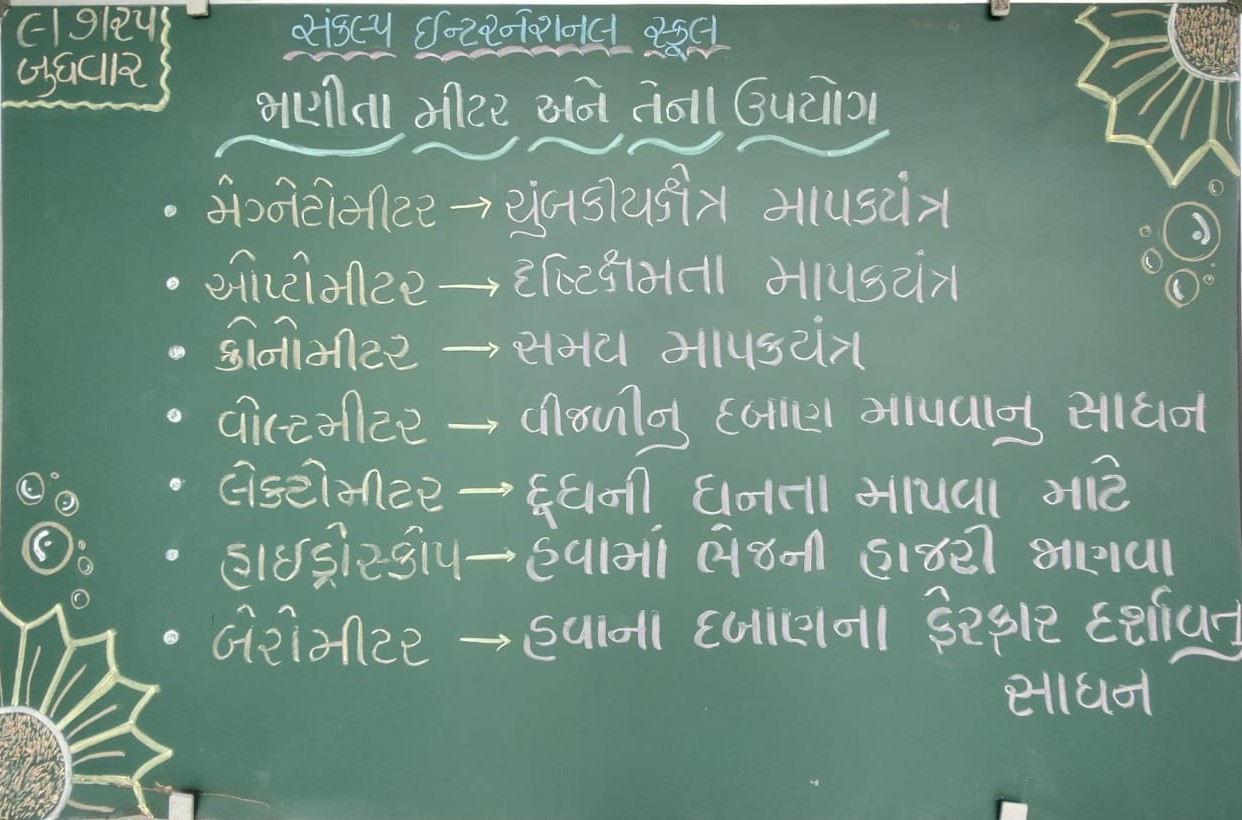 ૯/૭/૨૫
બુધવાર
સંકલ્પ ઈન્ટરનેશનલ સ્કૂલ
જાણીતા મીટર અને તેના ઉપયોગ
• મેગ્નેટોમીટર → ચુંબકીયક્ષેત્ર માપકયંત્ર
• ઓપ્ટોમીટર → દૃષ્ટિક્ષમતા માપકયંત્ર
• ક્રોનોમીટર → સમય માપકયંત્ર
• વોલ્ટમીટર → વીજળીનુ દબાણ માપવાનુ સાધન
• લેક્ટોમીટર → દૂધની ઘનતા માપવા માટે
• હાઈડ્રોસ્કોપ → હવામાં ભેજની હાજરી જાણવા
• બેરોમીટર → હવાના દબાણના ફેરફાર દર્શાવતુ
સાધન